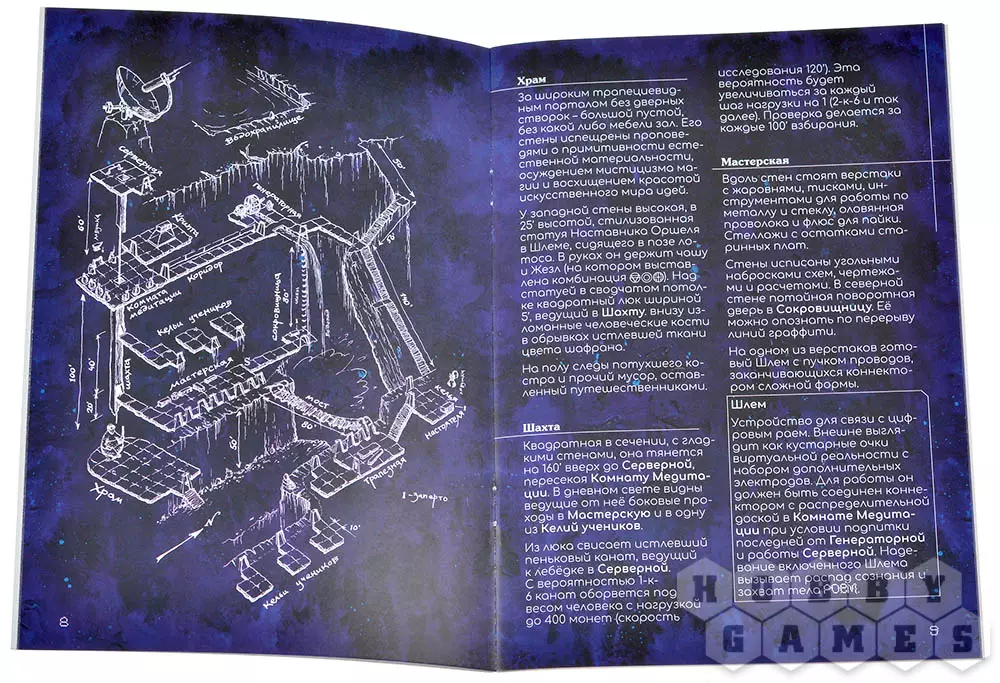 Водохранилище
Серверная
50'
60'
лестница
Генераторная
Кухня
Коридор
комната
медитации
сокровищница
80'
140'
Кельи учеников
100'
40'
шахта
Мастерская
S
20'
мост
80'
50'
Келья
настоятеля
Храм
Трапезная
1-заперто
N
10'
Кельи учеников
8
Храм
За широким трапециевид-
ным порталом без дверных
створок – большой пустой,
без какой либо мебели зал. Его
стены испещрены пропове-
дями о примитивности есте-
ственной материальности,
осуждением мистицизма ма-
гии и восхищением красотой
искусственного мира идей.
У западной стены высокая, в
25' высотой, стилизованная
статуя Наставника Оршеля
в Шлеме, сидящего в позе ло-
тоса. В руках он держит чашу
и Жезл (на котором выстав-
лена комбинация). Над
статуей в сводчатом потол-
ке квадратный люк шириной
5', ведущий в Шахту, внизу из-
ломанные человеческие кости
в обрывках истлевшей ткани
цвета шафрана.
На полу следы потухшего ко-
стра и прочий мусор, остав-
ленный путешественниками.
Шахта
Квадратная в сечении, с глад-
кими стенами, она тянется
на 160' вверх до Серверной,
пересекая Комнату Медита-
ции. В дневном свете видны
ведущие от неё боковые про-
ходы в Мастерскую и в одну
из Келий учеников.
Из люка свисает истлевший
пеньковый канат, ведущий
к лебёдке в Серверной.
С вероятностью 1-к-
6 канат оборвется под
весом человека с нагрузкой
до 400 монет (скорость
исследования 120'). Эта
вероятность будет
увеличиваться за каждый
шаг нагрузки на 1 (2-к-6 и так
далее). Проверка делается за
каждые 100' взбирания.
Мастерская
Вдоль стен стоят верстаки
с жаровнями, тисками, ин-
струментами для работы по
металлу и стеклу, оловянная
проволока и флюс для пайки.
Стеллажи с остатками ста-
ринных плат.
Стены исписаны угольными
набросками схем, чертежа-
ми и расчетами. В северной
стене потайная поворотная
дверь в Сокровищницу. Её
можно опознать по перерыву
линий граффити.
На одном из верстаков гото-
вый Шлем с пучком проводов,
оканчивающихся коннекто-
ром сложной формы.
Шлем
Устройство для связи с циф-
ровым раем. Внешне выгля-
дит как кустарные очки
виртуальной реальности с
набором дополнительных
электродов. Для работы он
должен быть соединен коннек-
тором с распределительной
доской в Комнате Медита-
ции при условии подпитки
последней от Генераторной
и работы Серверной. Наде-
вание включенного Шлема
вызывает распад сознания и
захват тела РОЕМ.
HOBBY
GAMES
9